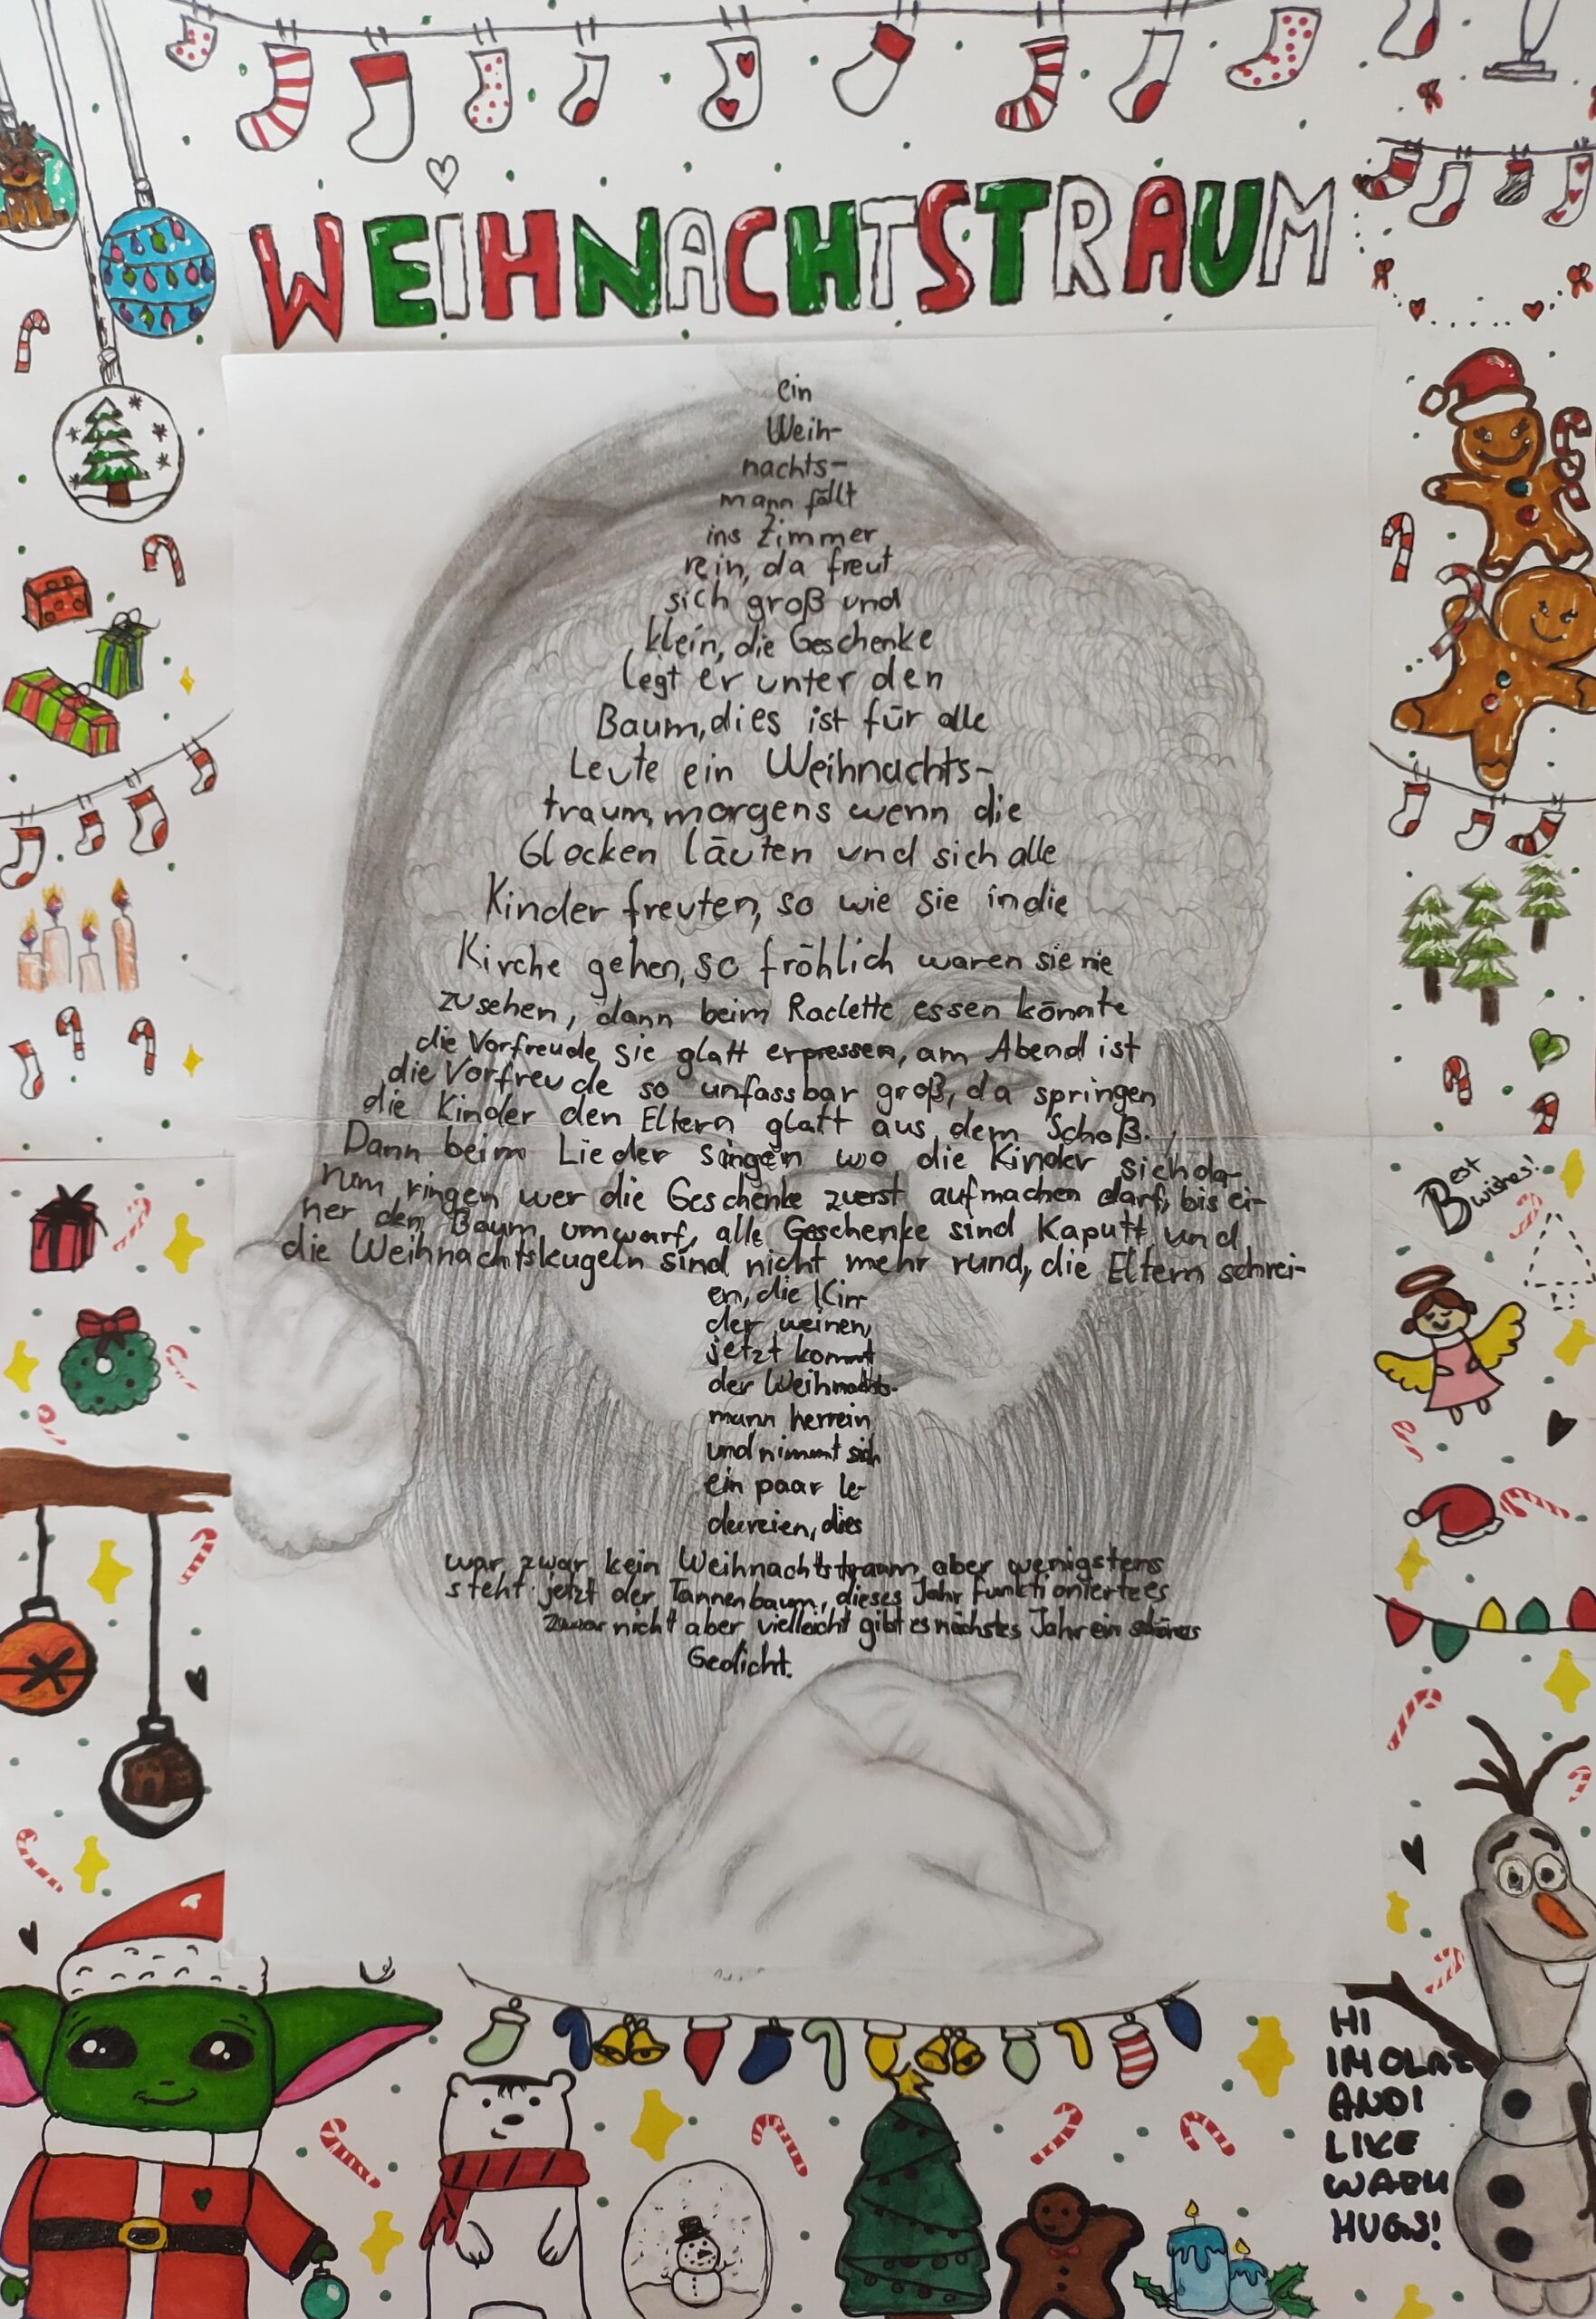 WEIHNACHTSTRAUM
ein
Weih-
nachts-
mann fällt
ins Zimmer
rein, da freut
sich groß und
klein, die Geschenke
legt er unter den
Baum, dies ist für alle
Leute ein Weihnachts-
traum, morgens wenn die
Glocken läuten und sich alle
Kinder freuten, so wie sie in die
Kirche gehen, so fröhlich waren sie nie
zu sehen, dann beim Raclette essen könnte
die Vorfreude sie glatt erpressen, am Abend ist
die Vorfreude so unfassbar groß, da springen
die Kinder den Eltern glatt aus dem Schoß.
Dann beim Lieder singen wo die Kinder sich da-
rum ringen wer die Geschenke zuerst aufmachen darf, bis ei-
ner den Baum umwarf, alle Geschenke sind Kaputt und
die Weihnachtskugeln sind nicht mehr rund, die Eltern schrei-
en, die Kin-
der weinen,
jetzt kommt
der Weihnachts-
mann herrein
und nimmt sich
ein paar le-
ckereien, dies
war zwar kein Weihnachtstraum aber wenigstens
steht jetzt der Tannenbaum, dieses Jahr funktionierte es
zwar nicht aber vielleicht gibt es nächstes Jahr ein schönes
Gedicht.
Best
wishes!
HI
IM OLAF
AND I
LIKE
WARM
HUGS!